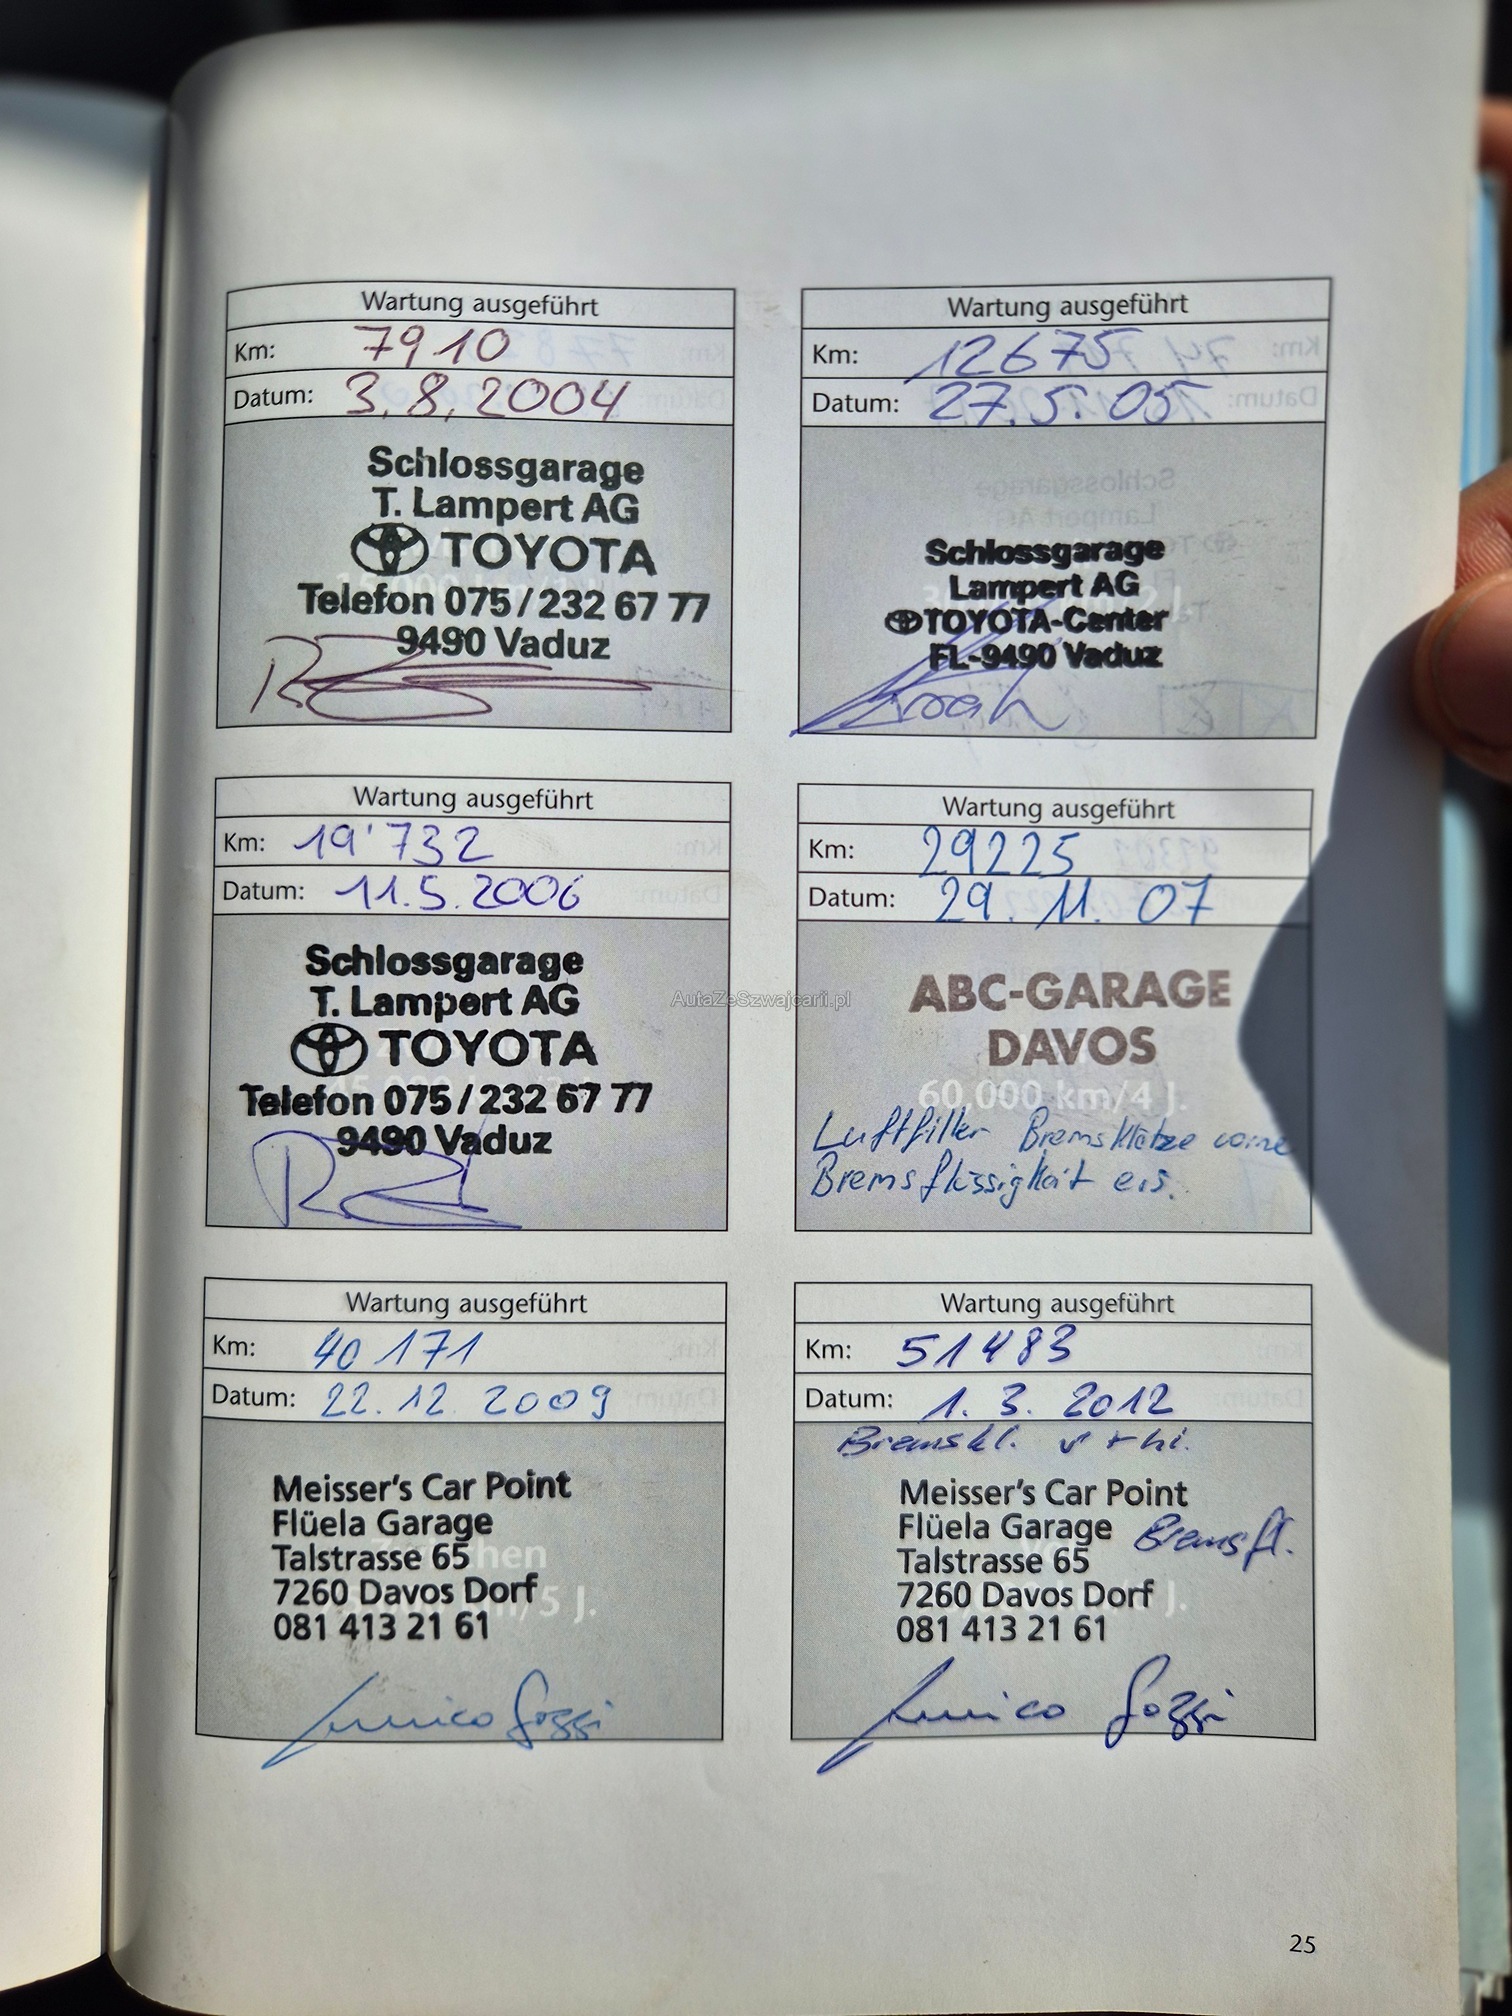 Wartung ausgeführt
Km: 7910
Datum: 3.8.2004
Schlossgarage
T. Lampert AG
TOYOTA
Telefon 075/232 67 77
9490 Vaduz
Wartung ausgeführt
Km: 12675
Datum: 27.5.05
Schlossgarage
Lampert AG
TOYOTA-Center
FL-9490 Vaduz
Wartung ausgeführt
Km: 19'732
Datum: 11.5.2006
Schlossgarage
T. Lampert AG
TOYOTA
Telefon 075/232 67 77
9490 Vaduz
Wartung ausgeführt
Km: 29225
Datum: 29.11.07
ABC-GARAGE
DAVOS
60,000 km/4 J.
Luftfilter Bremsklötze vorne
Bremsflüssigkeit
Wartung ausgeführt
Km: 40 171
Datum: 22.12.2009
Meisser's Car Point
Flüela Garage
Talstrasse 65
7260 Davos Dorf
081 413 21 61
Wartung ausgeführt
Km: 51483
Datum: 1.3.2012
Bremskl. v + hi.
Meisser's Car Point
Flüela Garage Bremsfl.
Talstrasse 65
7260 Davos Dorf
081 413 21 61
AutaZeSzwajcarii.pl
25